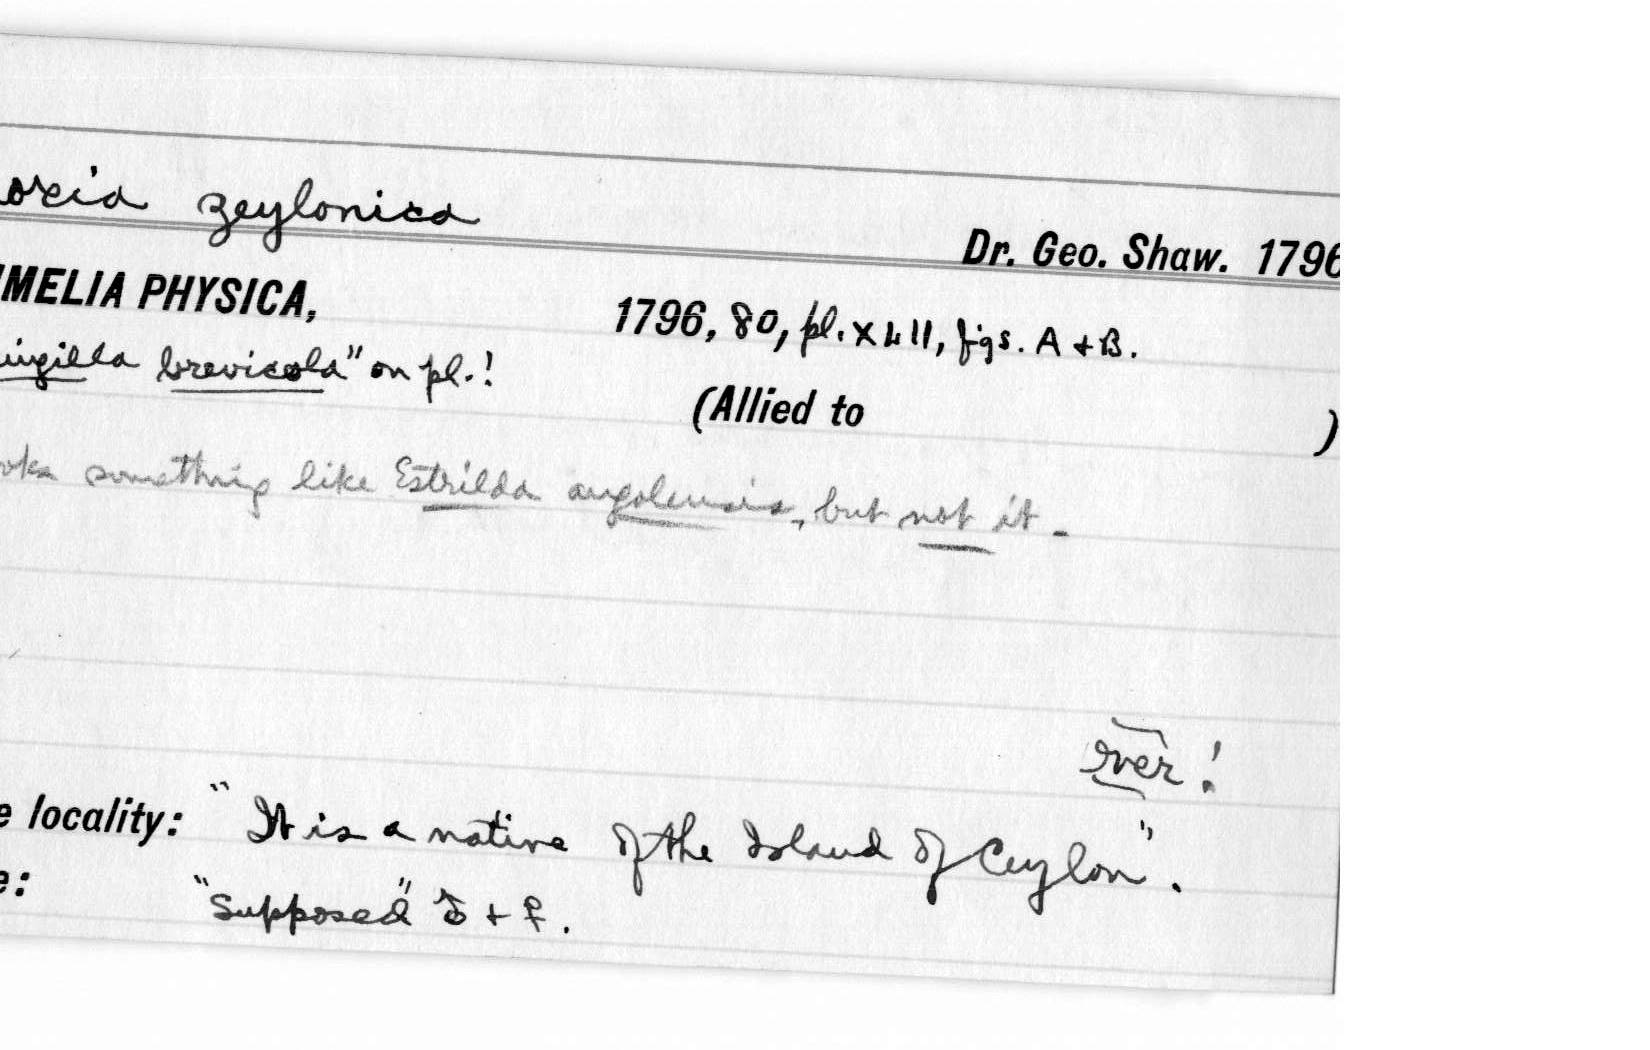 oxia zeylonica
Dr. Geo. Shaw. 1796
MELIA PHYSICA,
1796, 80, pl. XLII, figs. A + B.
ingilla brevicola" on pl.!
(Allied to )
oks something like Estrilda angolensis, but not it -
ver!
e locality: "It is a native of the Island of Ceylon".
e: "Supposed" ♂ + ♀.